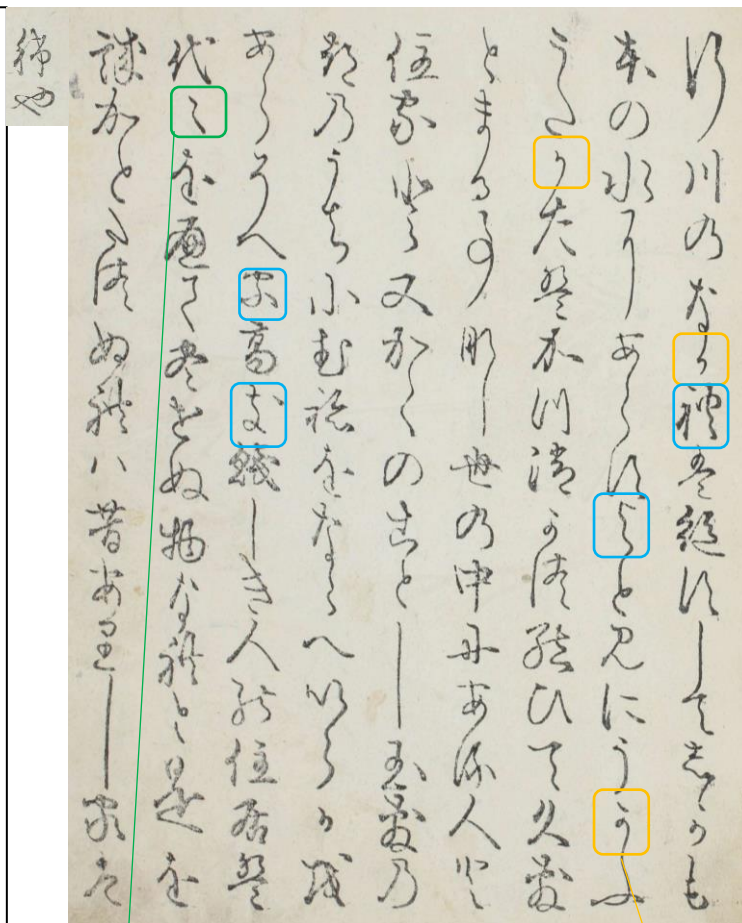 行川のなかれは絶すしてしかも
本の水にあらすよと見にうかふ
うたかたはかつ消かつ結ひて久敷
とまる事なし世の中にある人と
住家と又かくのことし玉敷の
都のうちにむねをならへいらかを
あらそへる高き賤しき人の住居は
代々を経て尽せぬ物なれと是を
誠かとたつぬれハ昔ありし家は
稀也